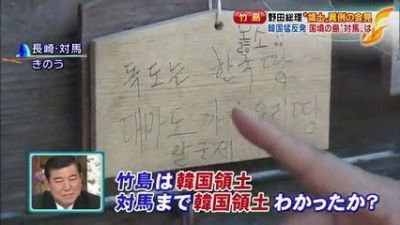 "竹島" 野田総理"領土"異例の会見
韓国猛反発 国境の島"対馬"は
長崎・対馬
きのう
독도는 한국땅
대마도 까지 우리땅
竹島は韓国領土
対馬まで韓国領土 わかったか?